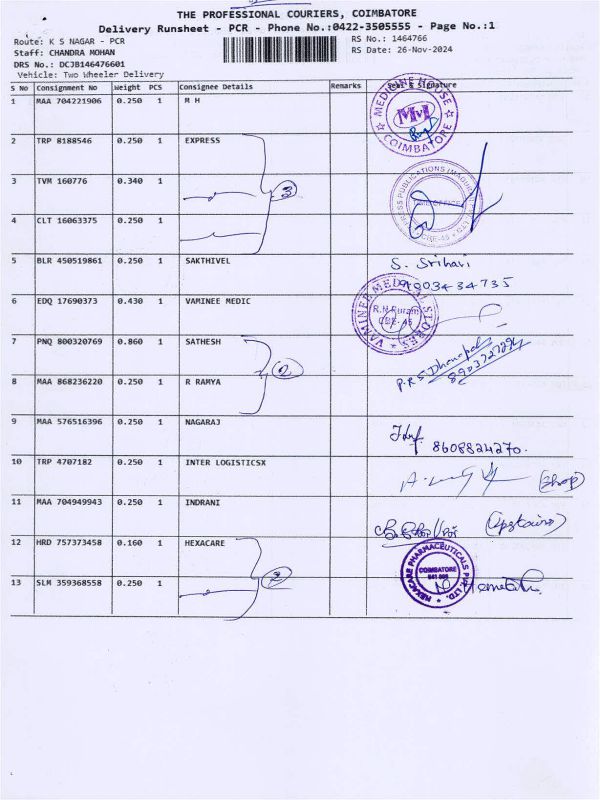 THE PROFESSIONAL COURIERS, COIMBATORE
Delivery Runsheet - PCR - Phone No.:0422-3505555 - Page No.:1
Route: K S NAGAR - PCR
RS No.: 1464766
Staff: CHANDRA MOHAN
RS Date: 26-Nov-2024
DRS No.: DCJB146476601
Vehicle: Two Wheeler Delivery
S No Consignment No Weight PCS Consignee Details Remarks Seal & Signature
1 MAA 704221906 0.250 1 M H
MEDICINE HOUSE
MM
COIMBATORE
2 TRP 8188546 0.250 1 EXPRESS
3 TVM 160776 0.340 1
3
4 CLT 16063375 0.250 1
5 BLR 450519861 0.250 1 SAKTHIVEL S. Srihari
9903434735
6 EDQ 17690373 0.430 1 VAMINEE MEDIC
VAMINEE MEDICAL STORES
R.N.Puram
CBE-45
7 PNQ 800320769 0.860 1 SATHESH
2
P.R.S Dhanapal
8 MAA 868236220 0.250 1 R RAMYA
9 MAA 576516396 0.250 1 NAGARAJ
8608824270.
10 TRP 4707182 0.250 1 INTER LOGISTICSX
(Shop)
11 MAA 704949943 0.250 1 INDRANI
(Upstairs)
12 HRD 757373458 0.160 1 HEXACARE
HEXACARE PHARMACEUTICALS PVT. LTD.
COIMBATORE
2
13 SLM 359368558 0.250 1